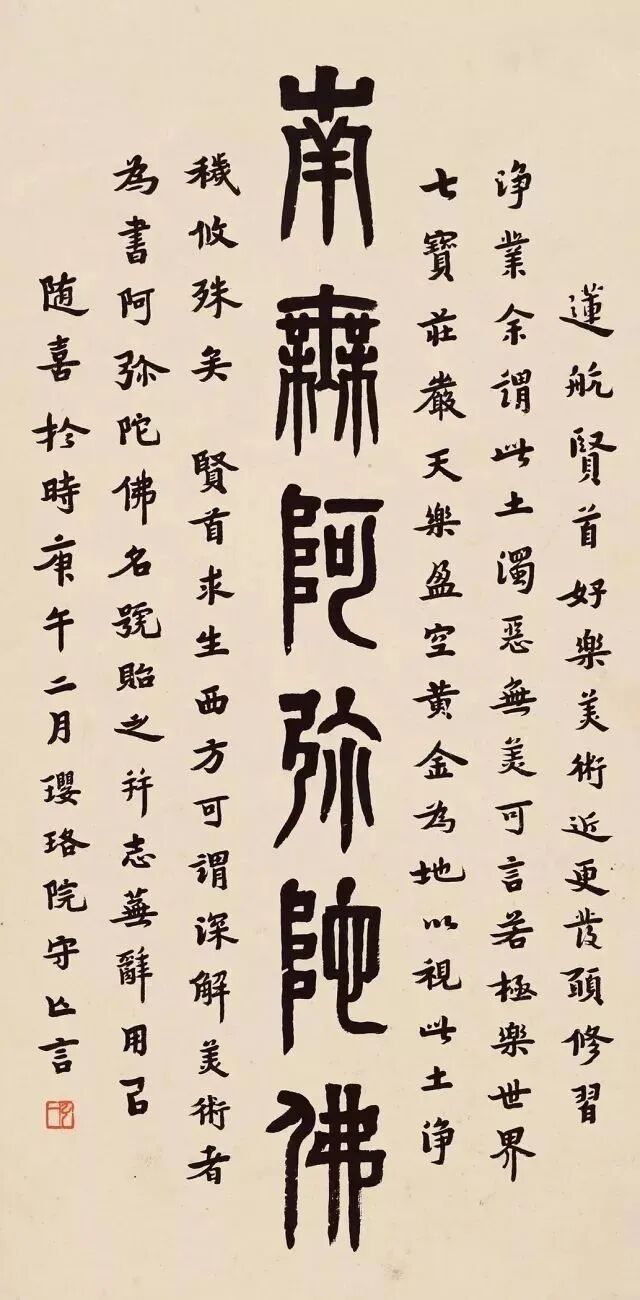 蓮航賢首好樂美術近更發願修習
淨業余謂此土濁惡無美可言若極樂世界
七寶莊嚴天樂盈空黃金為地以視此土淨
南無阿弥陀佛
穢攸殊矣 賢首求生西方可謂深解美術者
為書阿弥陀佛名號貽之并志蕪辭用召
随喜於時庚午二月瓔珞院守仁言